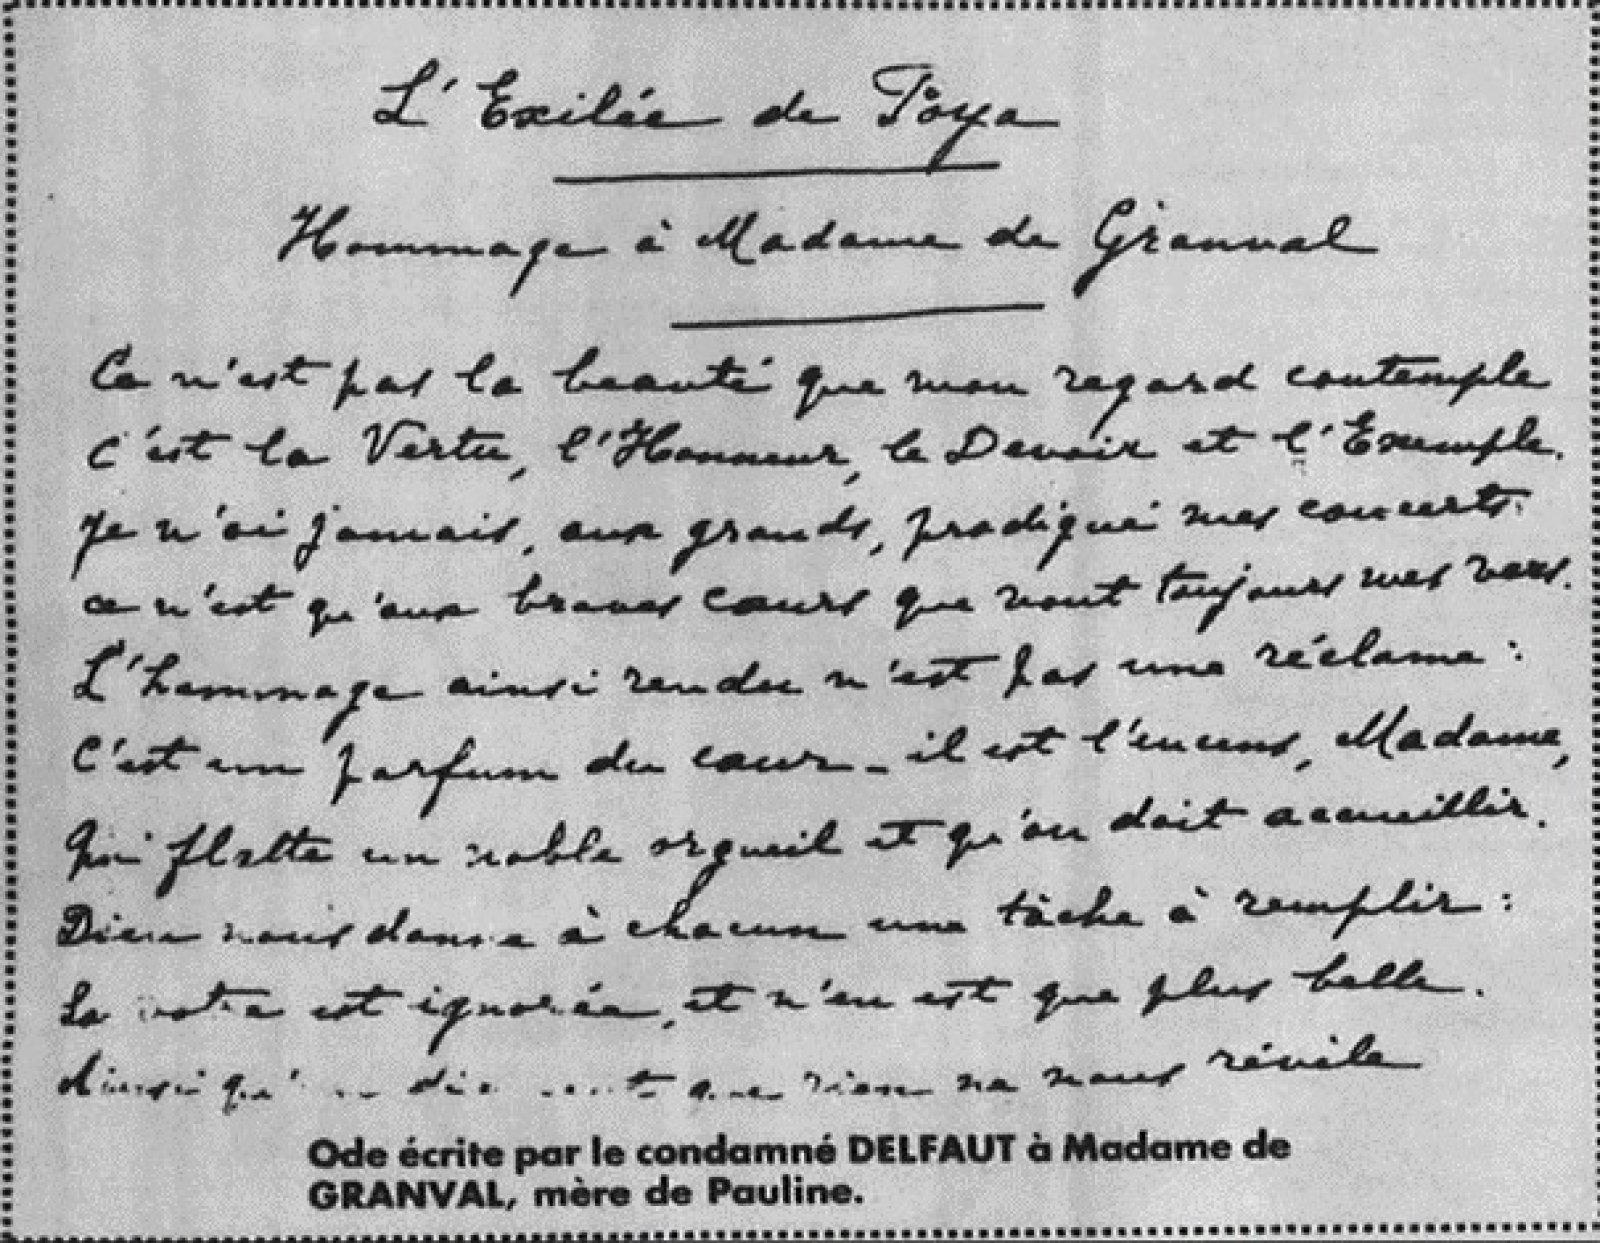 L'Exilée de Pöya
Hommage à Madame de Granval
Ce n'est pas la beauté que mon regard contemple
C'est la Vertu, l'Honneur, le Devoir et l'Exemple.
Je n'ai jamais, aux grands, prodigué mes concerts.
ce n'est qu'aux braves cœurs que vont toujours mes vers.
L'hommage ainsi rendu n'est pas une réclame :
C'est un parfum du cœur - il est l'encens, Madame,
Qui flatte un noble orgueil et qu'on doit accueillir.
Dieu nous donne à chacun une tâche à remplir :
La votre est ignorée, et n'en est que plus belle.
Ainsi que rien ne nous révèle
Ode écrite par le condamné DELFAUT à Madame de
GRANVAL, mère de Pauline.